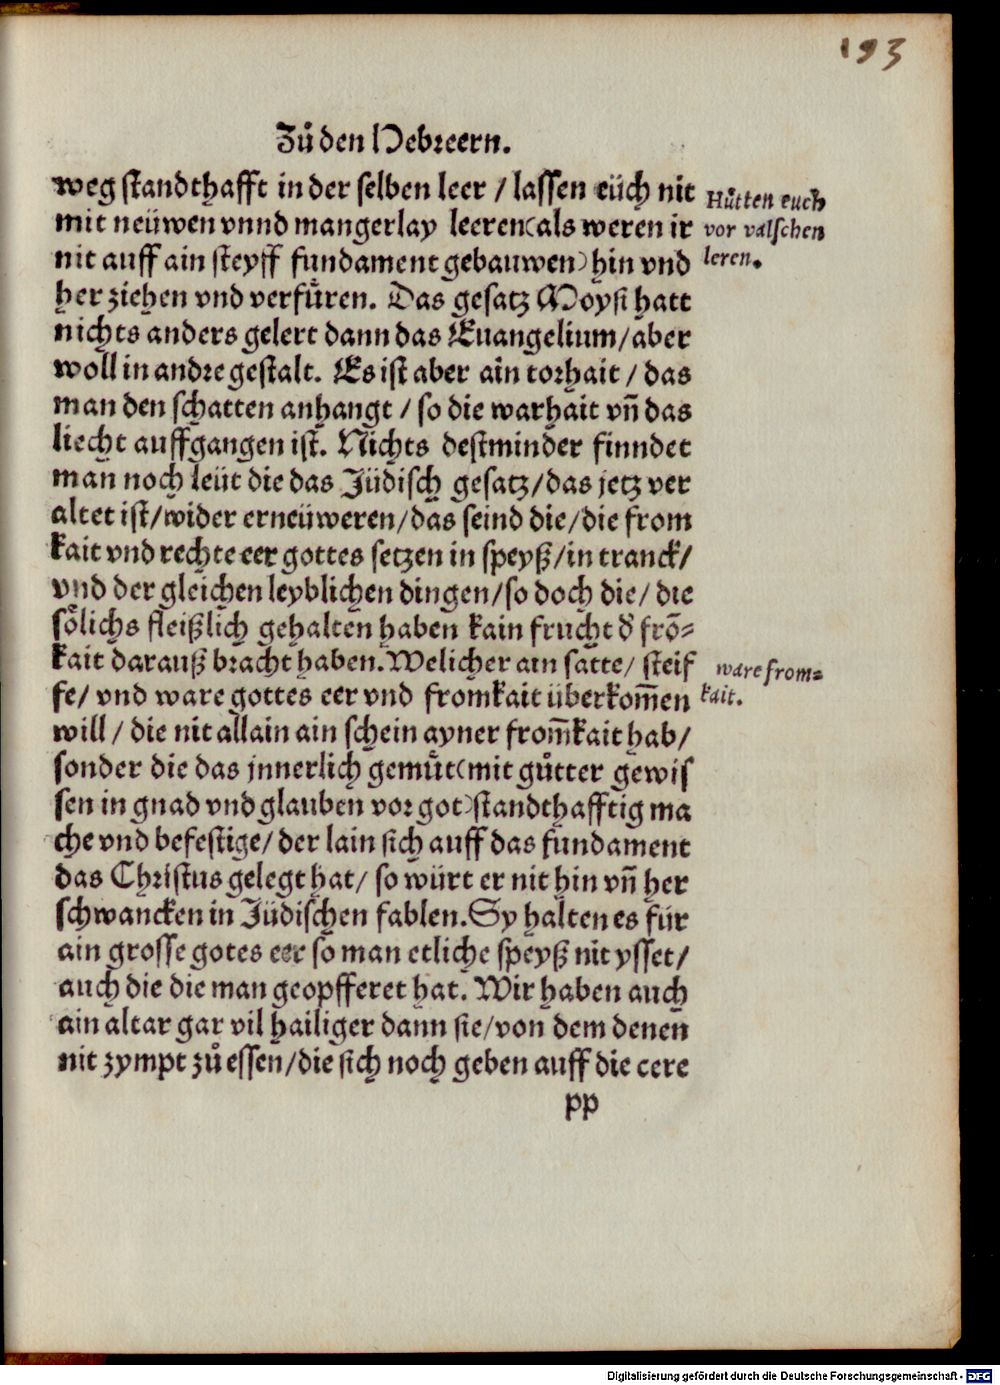 193
Zů den Hebreern.
weg standthafft in der selben leer / lassen eüch nit
mit neüwen vnnd mangerlay leeren(als weren ir
nit auff ain steyff fundament gebauwen) hin vnd
her ziehen vnd verfůren. Das gesatz Moysi hatt
nichts anders gelert dann das Euangelium/aber
woll in andre gestalt. Es ist aber ain torhait / das
man den schatten anhangt / so die warhait vn̄ das
liecht auffgangen ist. Nichts destminder finndet
man noch leüt die das Jüdisch gesatz/das jetz ver
altet ist/wider erneüweren/das seind die/die from
kait vnd rechte eer gottes setzen in speyß/in tranck/
vnd der gleichen leyblichen dingen/so doch die/ die
sölichs fleißlich gehalten haben kain frucht d̄ frō⸗
kait darauß bracht haben. Welicher ain satte/ steif
fe/ vnd ware gottes eer vnd fromkait überkom̄en
will / die nit allain ain schein ayner from̄kait hab/
sonder die das jnnerlich gemůt(mit gůtter gewis
sen in gnad vnd glauben vor got)standthafftig ma
che vnd befestige/ der lain sich auff das fundament
das Christus gelegt hat/ so würt er nit hin vn̄ her
schwancken in Jüdischen fablen. Sy halten es für
ain grosse gotes eer so man etliche speyß nit ysset/
auch die die man geopfferet hat. Wir haben auch
ain altar gar vil hailiger dann sie/von dem denen
nit zympt zů essen/die sich noch geben auff die cere
pp
Hůtten euch
vor valschen
leren.
ware from⸗
kait.
Digitalisierung gefördert durch die Deutsche Forschungsgemeinschaft - DFG